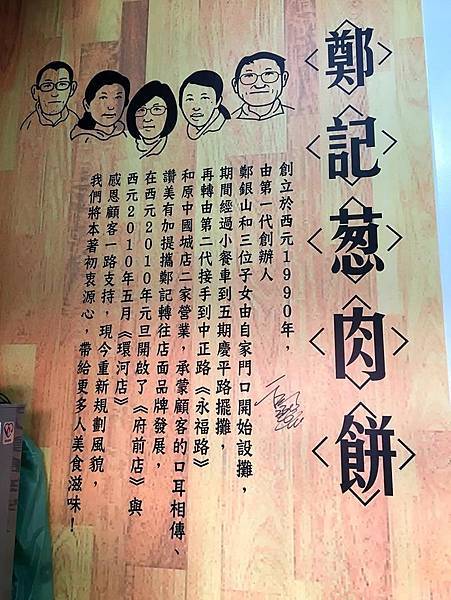 鄭記葱肉餅
創立於西元1990年，
由第一代創辦人
鄭銀山和三位子女由自家門口開始設攤，
期間經過小餐車到五期慶平路擺攤，
再轉由第二代接手到中正路《永福路》
和原中國城店二家營業，承蒙顧客的口耳相傳、
讚美有加提攜鄭記轉往店面品牌發展，
在西元2010年元旦開啟了《府前店》與
西元2010年五月《環河店》
感恩顧客一路支持，現今重新規劃風貌，
我們將本著初衷源心，帶給更多人美食滋味！